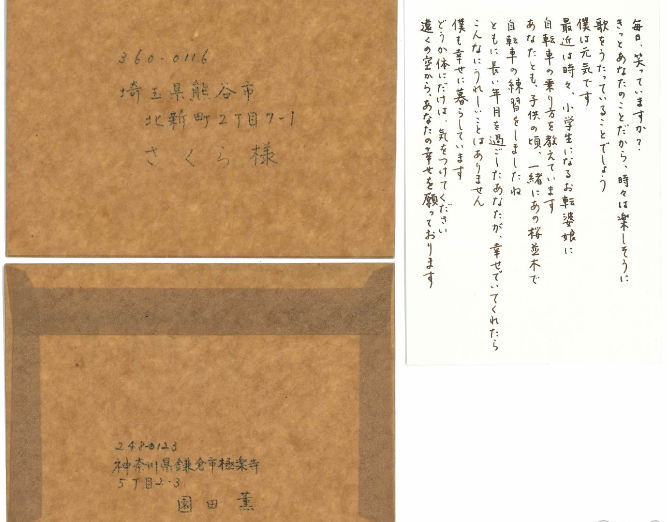 360-0116
埼玉県熊谷市
北新町2丁目7-1
さくら様
248-0123
神奈川県鎌倉市極楽寺
5丁目2-3
園田薫
毎日、笑っていますか？
きっとあなたのことだから、時々は楽しそうに
歌をうたっていることでしょう
僕は元気です
最近は時々、小学生になるお転婆娘に
自転車の乗り方を教えています
あなたとも、子供の頃、一緒にあの桜並木で
自転車の練習をしましたね
ともに長い年月を過ごしたあなたが、幸せでいてくれたら
こんなにうれしいことはありません
僕も幸せに暮らしています
どうか体にだけは、気をつけてください
遠くの空から、あなたの幸せを願っております